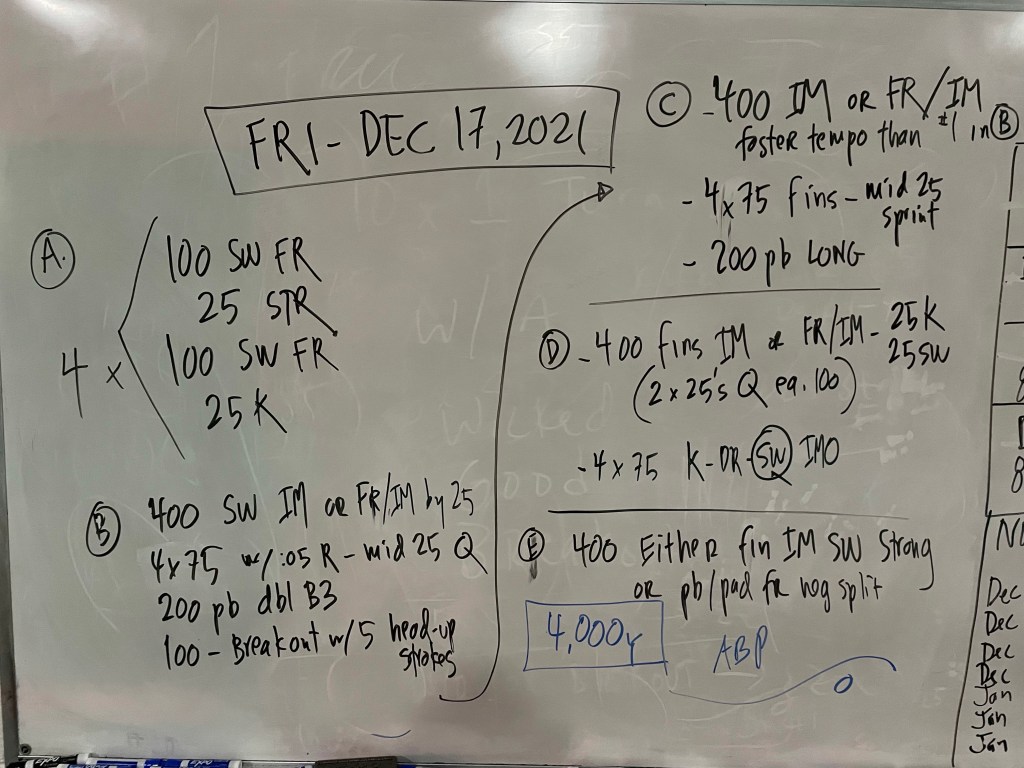 FRI - DEC 17, 2021
A.
4 x
100 SW FR
25 STR
100 SW FR
25 K
B 400 SW IM OR FR/IM by 25
4x75 w/ :05 R - mid 25 Q
200 pb dbl B3
100 - Breakout w/ 5 head-up
strokes
C - 400 IM OR FR/IM
faster tempo than #1 in B
- 4x75 fins - mid 25
sprint
- 200 pb LONG
D - 400 fins IM or FR/IM - 25K
25SW
(2x25's Q ea. 100)
- 4x75 K-DR-SW IMO
E 400 Either fin IM SW Strong
OR pb/pad FR neg split
4,000y
ABP
Dec
Dec
Dec
Dec
Jan
Jan
Jan